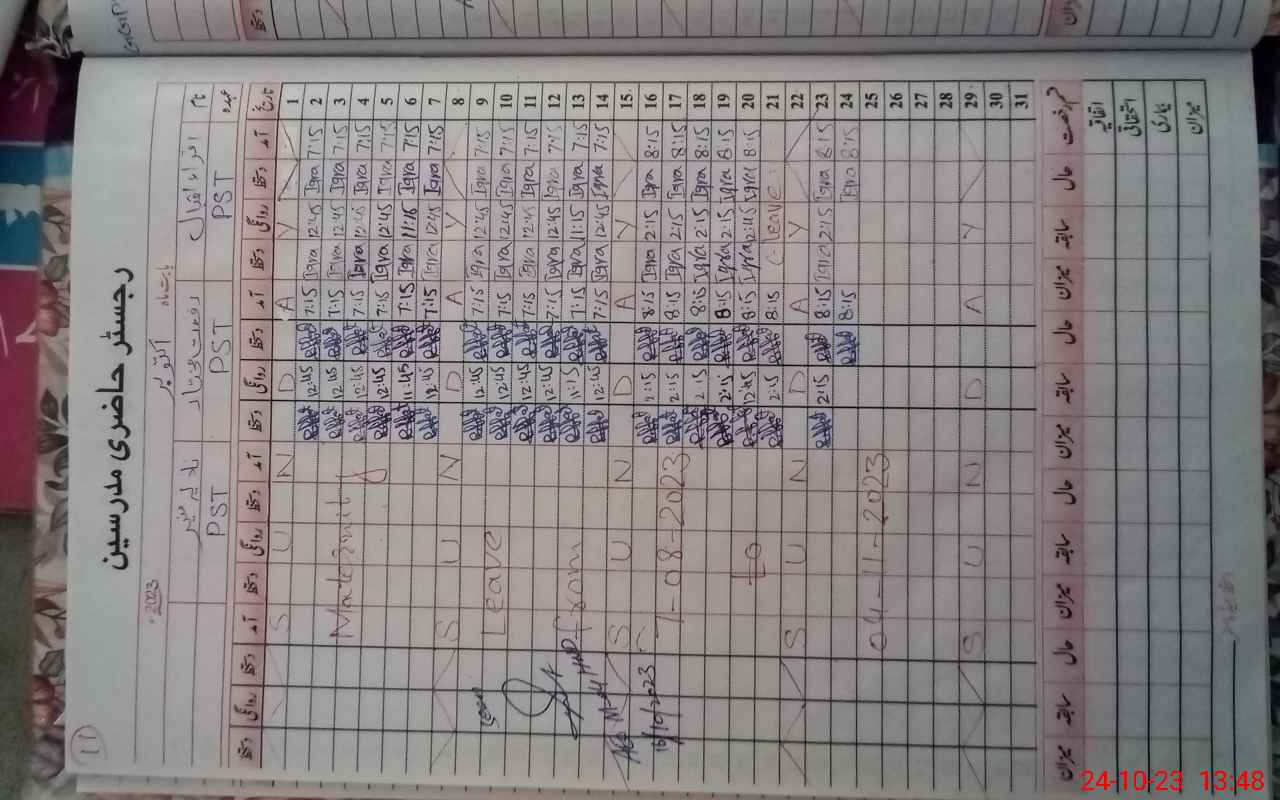 رجسٹر حاضری مدرسین
11
2023
اکتوبر
نام
عہدہ
PST
PST
PST
تاریخ
آمد دستخط روانگی دستخط آمد دستخط روانگی دستخط آمد دستخط روانگی دستخط آمد دستخط روانگی دستخط
1 S U N D A Y
2 7:15 Iqra 12:45 Iqra 7:15 12:45
3 7:15 Iqra 12:45 Iqra 7:15 12:45
4 7:15 Iqra 12:45 Iqra 7:15 12:45
5 7:15 Iqra 12:45 Iqra 7:15 12:45
6 7:15 Iqra 11:15 Iqra 7:15 11:45
7 7:15 Iqra 12:45 Iqra 7:15 12:45
8 S U N D A Y
9 7:15 Iqra 12:45 Iqra 7:15 12:45
10 7:15 Iqra 12:45 Iqra 7:15 12:45
11 7:15 Iqra 12:45 Iqra 7:15 12:45
12 7:15 Iqra 12:45 Iqra 7:15 12:45
13 7:15 Iqra 11:15 Iqra 7:15 11:15
14 7:15 Iqra 12:45 Iqra 7:15 12:45
15 S U N D A Y
16 8:15 Iqra 2:15 Iqra 8:15 2:15
17 8:15 Iqra 2:15 Iqra 8:15 2:15
18 8:15 Iqra 2:15 Iqra 8:15 2:15
19 8:15 Iqra 2:15 Iqra 8:15 2:15
20 8:15 Iqra 2:45 Iqra 8:15 12:45
21 C-leave 8:15 2:15
22 S U N D A Y
23 8:15 Iqra 2:15 Iqra 8:15 2:15
24 8:15 Iqra 8:15
25
26
27
28
29 S U N D A Y
30
31
Maternity
Leave
from
7-08-2023
to
04-11-2023
16/10/2023
قسم رخصت حال سابقہ میزان حال سابقہ میزان حال سابقہ میزان حال سابقہ میزان
اتفاقیہ
استحقاقی
بیماری
میزان
24-10-23 13:48